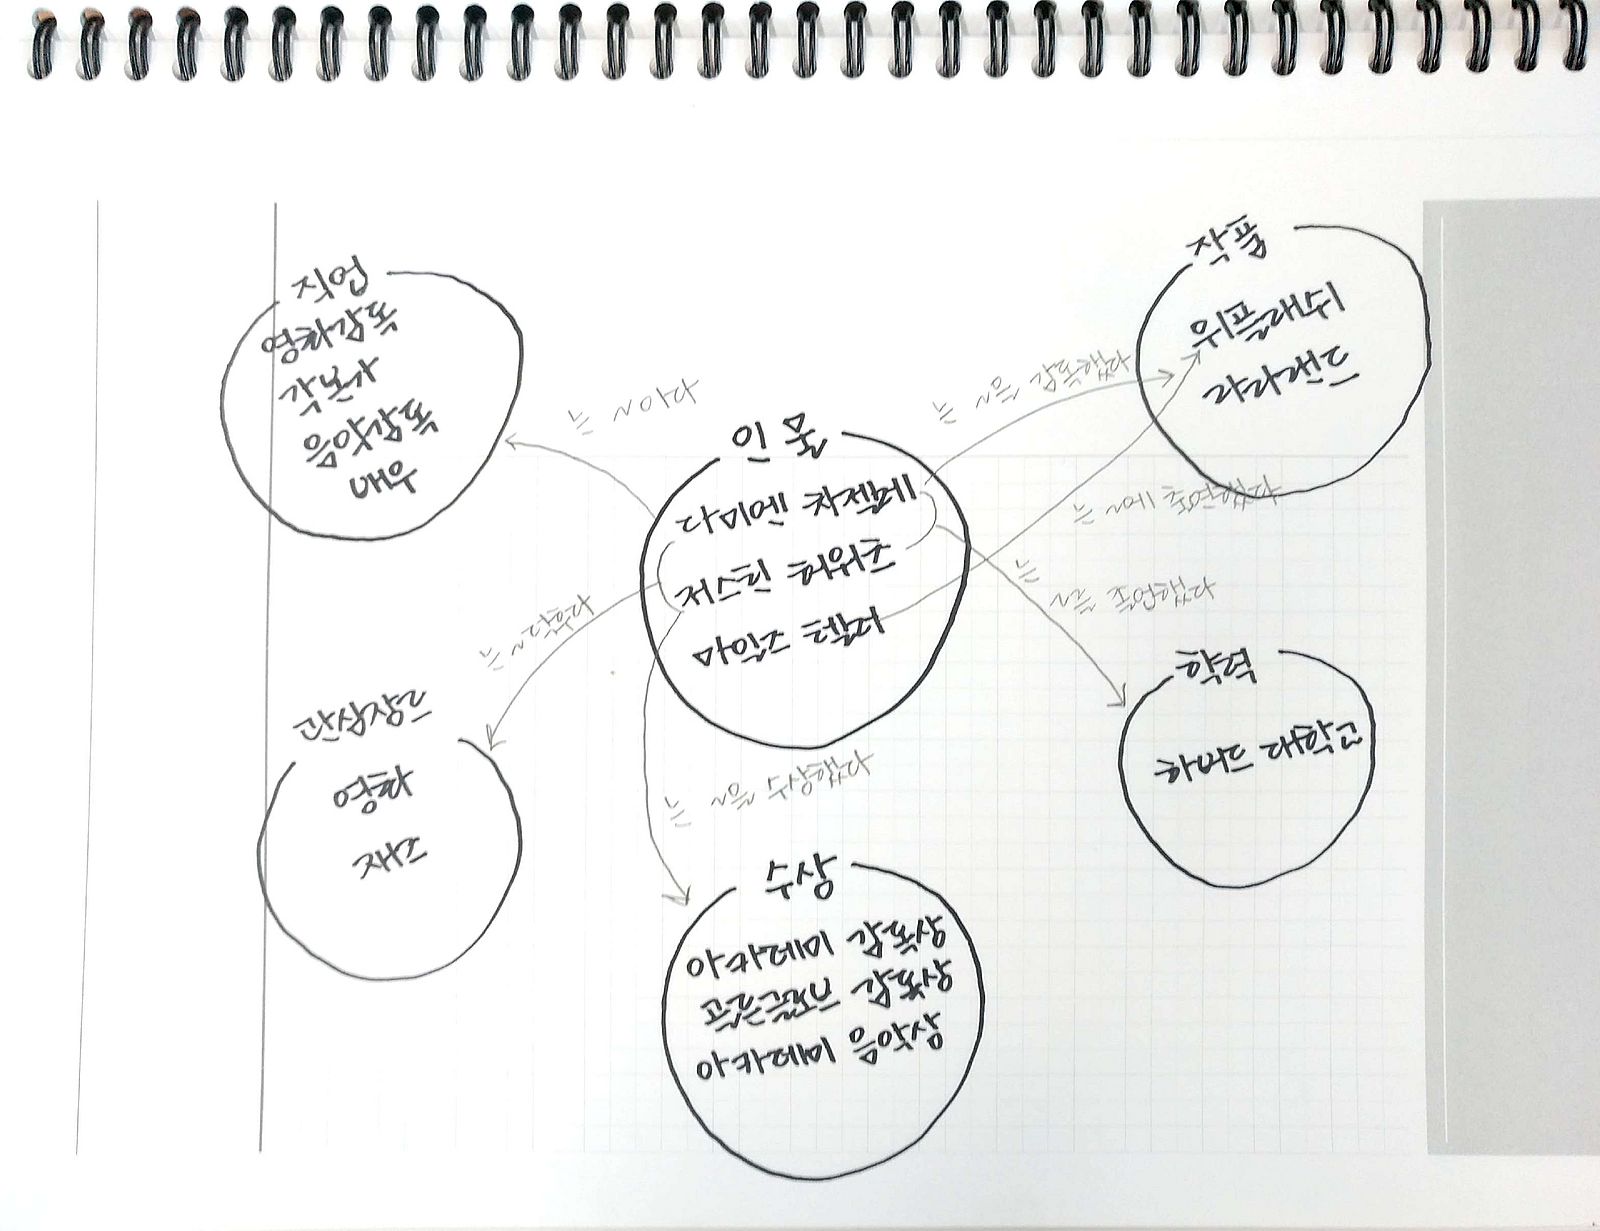 직업
영화감독
각본가
음악감독
배우
는 ~이다
인물
다미엔 차젤레
저스틴 허위츠
마일즈 텔러
는 ~을 감독했다
작품
위플래쉬
라라랜드
는 ~에 출연했다
는
~를 졸업했다
학력
하버드 대학교
는 ~다룬다
관심장르
영화
재즈
는 ~을 수상했다
수상
아카데미 감독상
골든글로브 감독상
아카데미 음악상